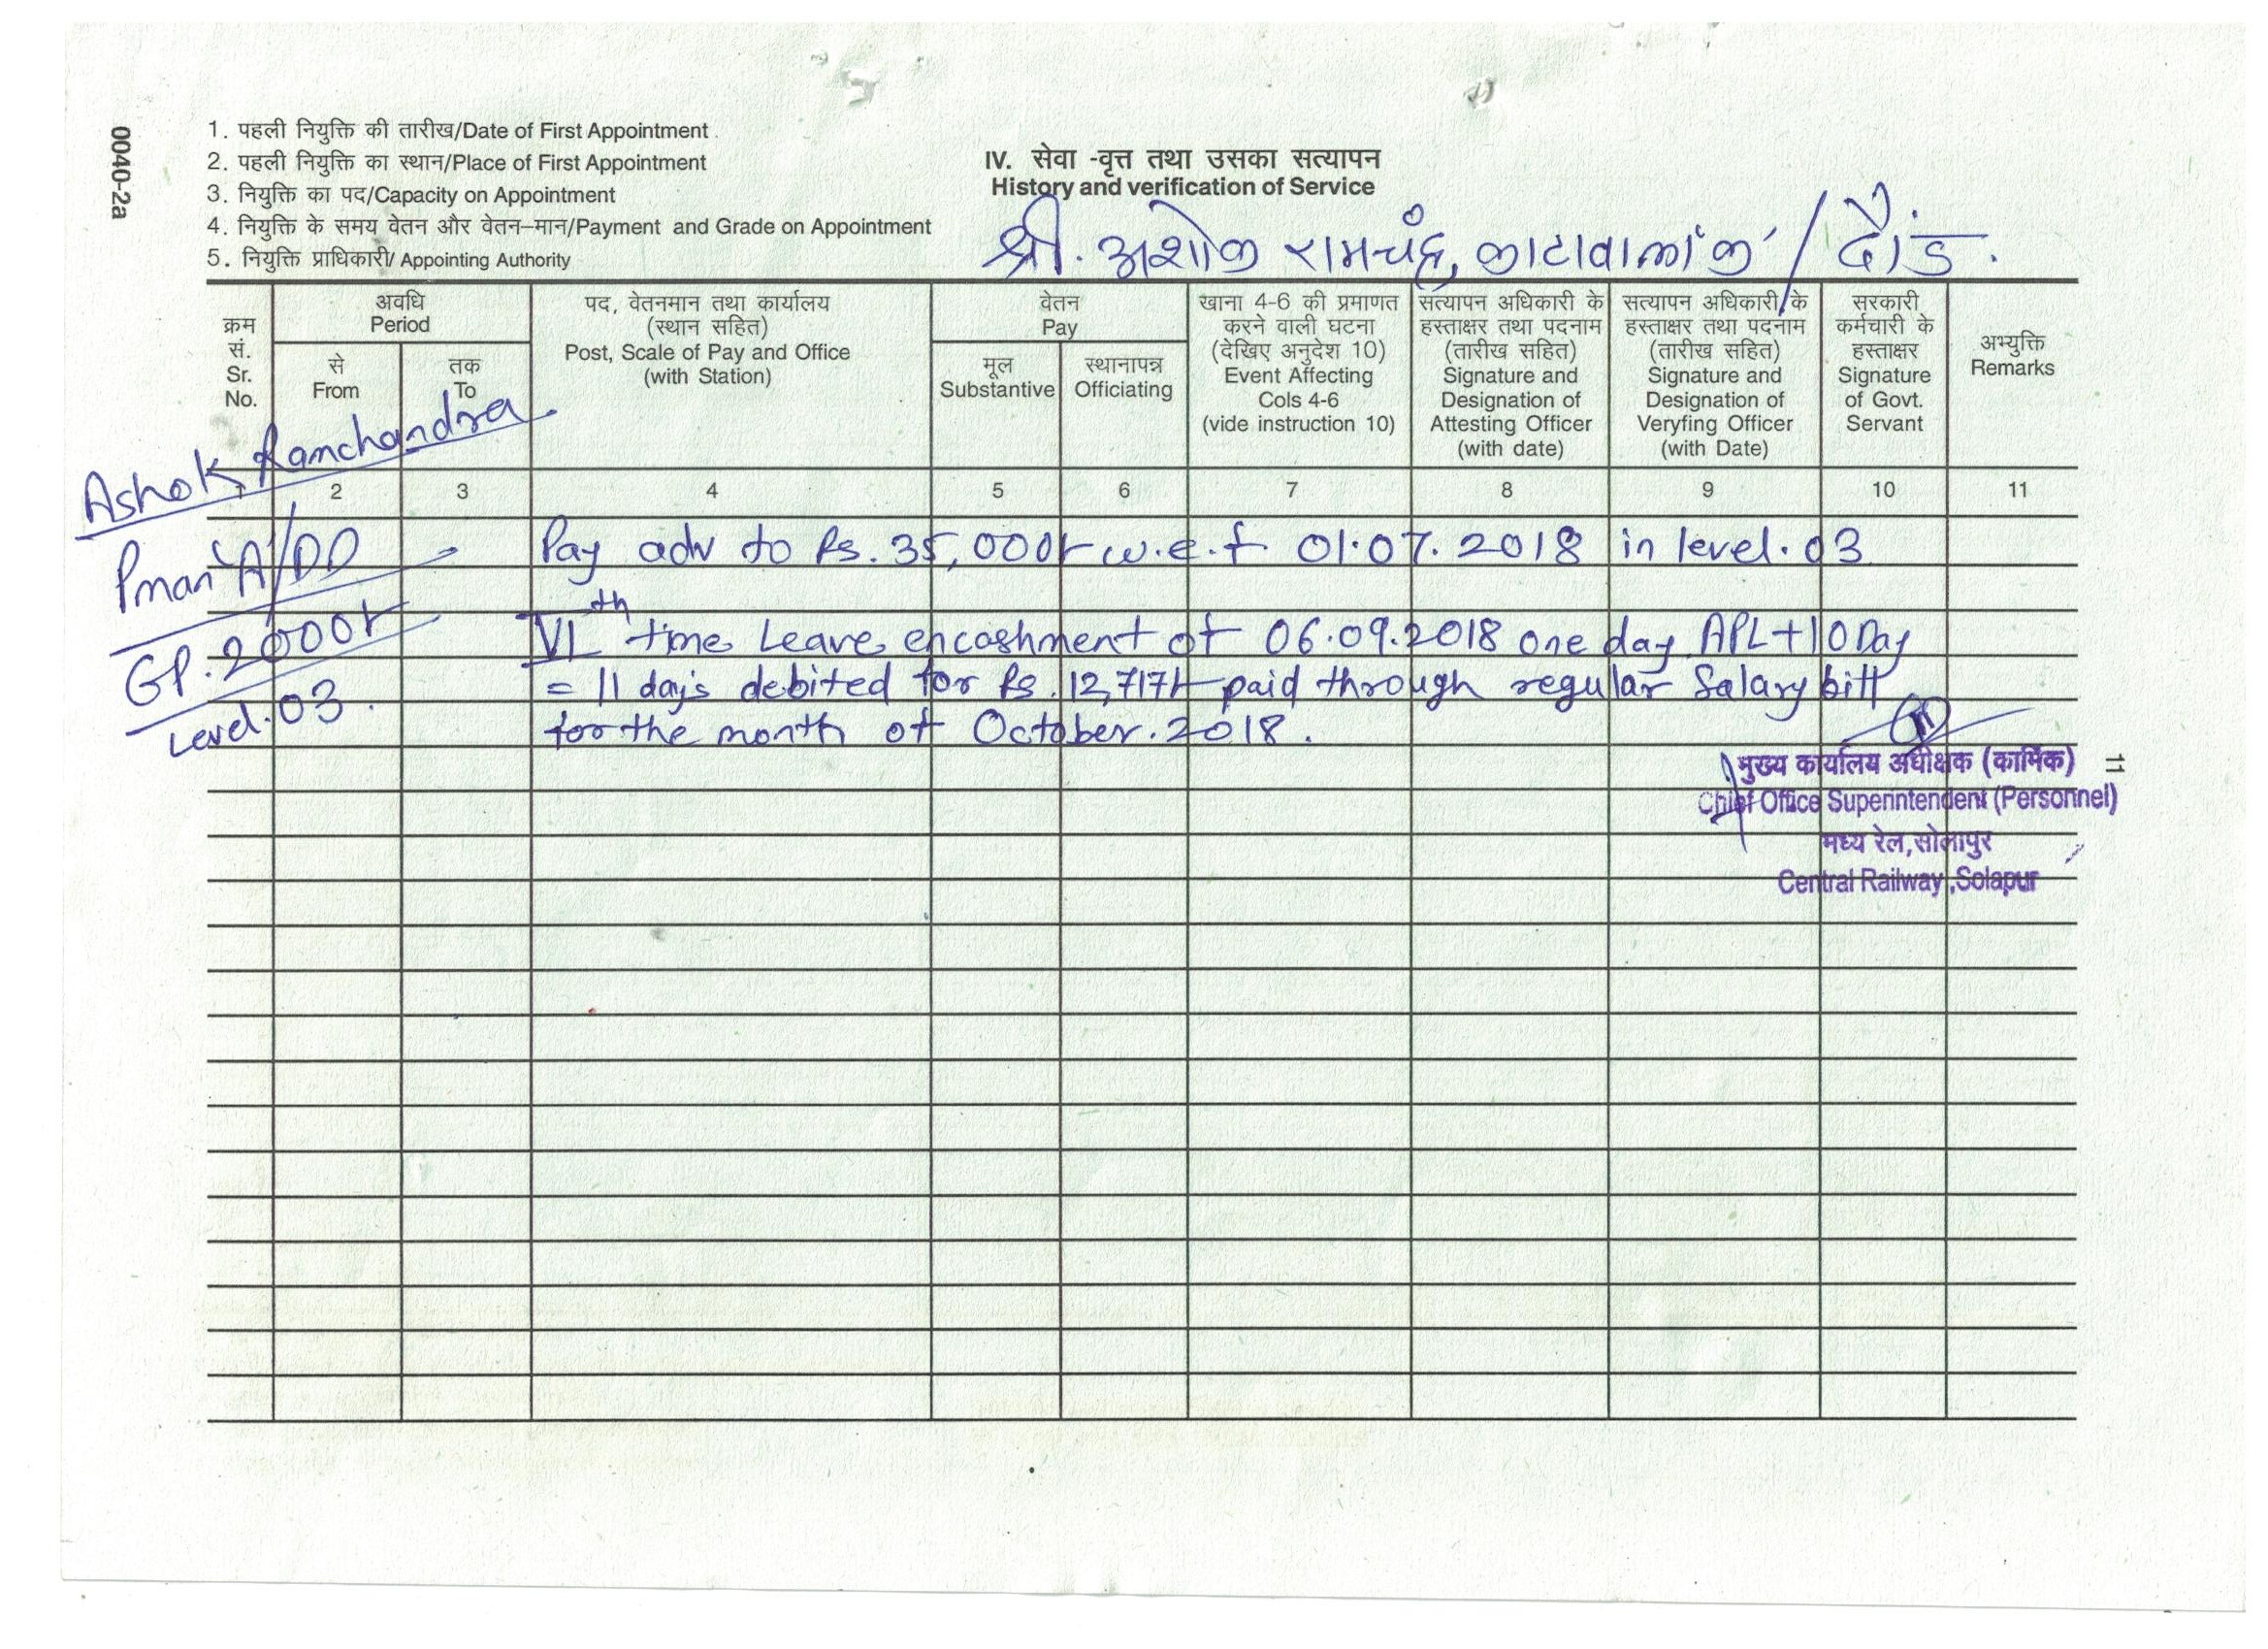 0040-2a
1. पहली नियुक्ति की तारीख/Date of First Appointment
2. पहली नियुक्ति का स्थान/Place of First Appointment
3. नियुक्ति का पद/Capacity on Appointment
4. नियुक्ति के समय वेतन और वेतन-मान/Payment and Grade on Appointment
5. नियुक्ति प्राधिकारी/ Appointing Authority
IV. सेवा -वृत्त तथा उसका सत्यापन
History and verification of Service
श्री. अशोक रामचंद्र, काटावाला 'क' / दौंड.
क्रम
सं.
Sr.
No.
अवधि
Period
से
From
तक
To
पद, वेतनमान तथा कार्यालय
(स्थान सहित)
Post, Scale of Pay and Office
(with Station)
वेतन
Pay
मूल
Substantive
स्थानापन्न
Officiating
खाना 4-6 की प्रमाणत
करने वाली घटना
(देखिए अनुदेश 10)
Event Affecting
Cols 4-6
(vide instruction 10)
सत्यापन अधिकारी के
हस्ताक्षर तथा पदनाम
(तारीख सहित)
Signature and
Designation of
Attesting Officer
(with date)
सत्यापन अधिकारी के
हस्ताक्षर तथा पदनाम
(तारीख सहित)
Signature and
Designation of
Veryfing Officer
(with Date)
सरकारी
कर्मचारी के
हस्ताक्षर
Signature
of Govt.
Servant
अभ्युक्ति
Remarks
1 2 3 4 5 6 7 8 9 10 11
Ashok Ramchandra
Pman 'A'/DD
GP. 2000/-
Level. 03.
Pay adv to Rs. 35,000/- w.e.f 01.07.2018 in level. 03
VIth time Leave encashment of 06.09.2018 one day APL + 10 Day
= 11 days debited for Rs. 12,717/- paid through regular Salary bill
for the month of October. 2018.
मुख्य कार्यालय अधीक्षक (कार्मिक)
Chief Office Superintendent (Personnel)
मध्य रेल, सोलापुर
Central Railway, Solapur
11